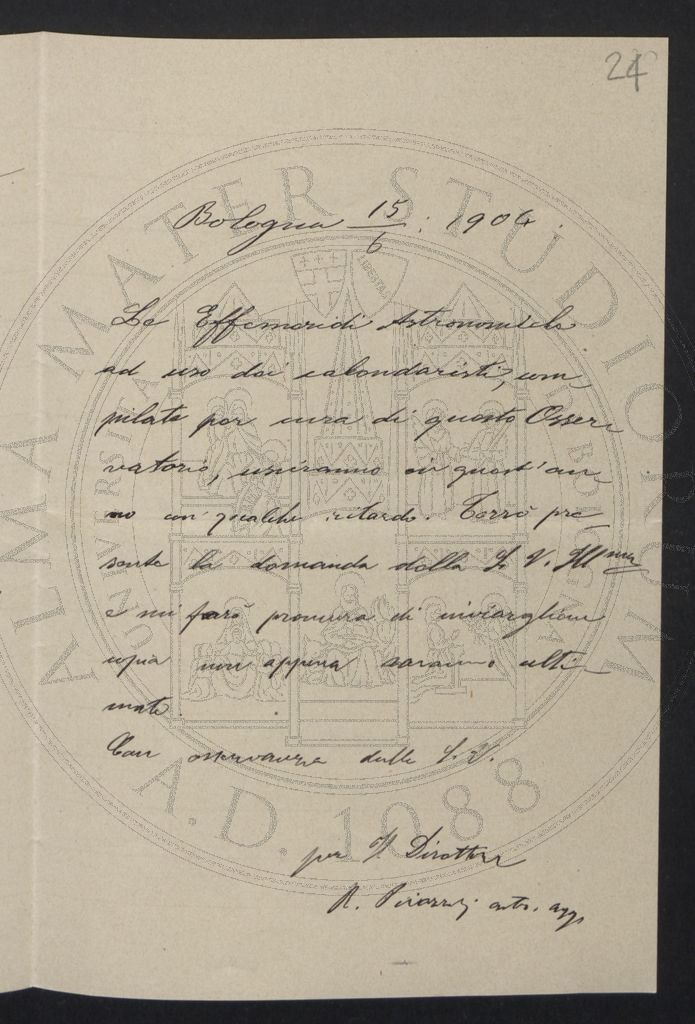 24
Bologna 15/6. 1904.
Le Effemeridi Astronomiche
ad uso dei calendaristi, com-
pilate per cura di questo Osser-
vatorio, usciranno in quest'an-
no con qualche ritardo. Terrò pre-
sente la domanda della S. V. Ill.ma
e mi farò premura di inviargliene
copia non appena saranno ulti-
mate.
Con osservanza della S. V.
per Il Direttore
R. Pirazzoli astr. agg.
ALMA MATER STUDIORUM
A.D. 1088